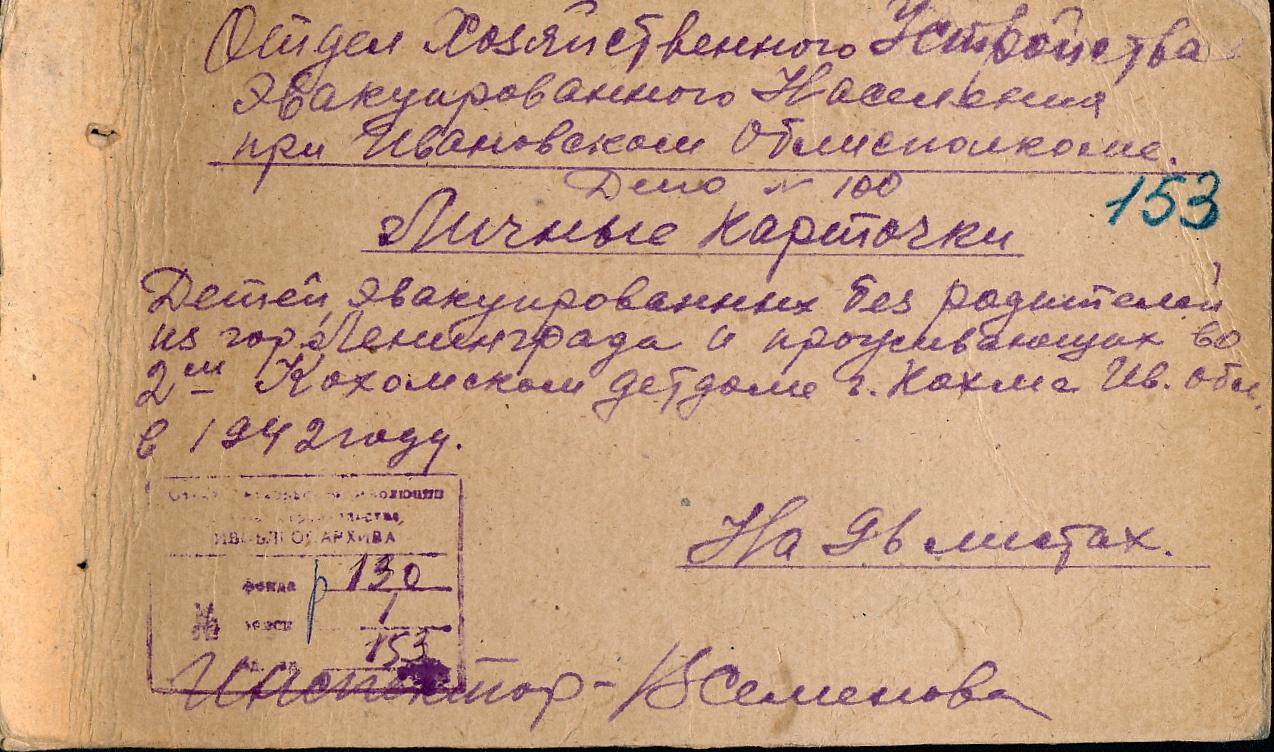 Отдел Хозяйственного Устройства
Эвакуированного Населения
при Ивановском Облисполкоме.
Дело № 100
153
Личные карточки
Детей, эвакуированных без родителей
из гор. Ленинграда и проживающих во
2м Кохомском детдоме г. Кохма Ив. обл.
в 1942 году.
революции
ИВОБЛГОСАРХИВА
На листах.
фонда р 130
№ описи 1
153
Инспектор - Семенова